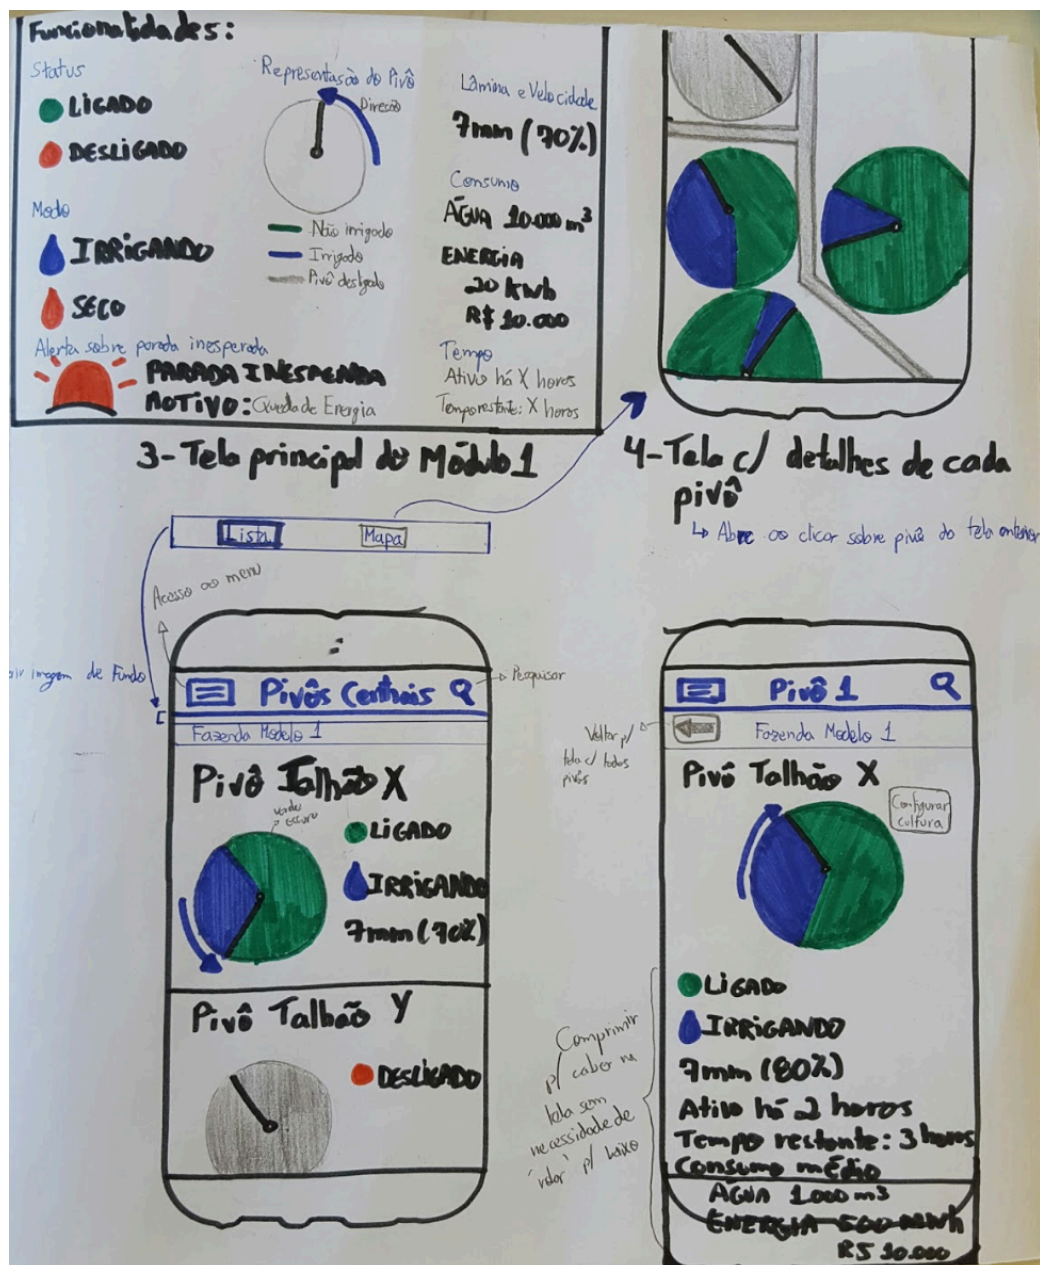 Funcionalidades:
Status
LIGADO
DESLIGADO
Modo
IRRIGANDO
SECO
Alerta sobre parada inesperada
PARADA INESPERADA
MOTIVO: Queda de Energia
Representação do Pivô
Direção
Não irrigado
Irrigado
Pivô desligado
Lâmina e Velocidade
7mm (70%)
Consumo
ÁGUA 10.000 m³
ENERGIA
20 kWh
R$ 10.000
Tempo
Ativo há X horas
Tempo restante: X horas
3-Tela principal do Módulo 1
Lista
Mapa
Acesso ao menu
imagem de Fundo
Pivôs Centrais
Pesquisar
Fazenda Modelo 1
Pivô Talhão X
verde
escuro
LIGADO
IRRIGANDO
7mm (70%)
Pivô Talhão Y
DESLIGADO
4-Tela c/ detalhes de cada
pivô
↳ Abre ao clicar sobre pivô da tela anterior
Pivô 1
Voltar p/
tela c/ todos
pivôs
Fazenda Modelo 1
Pivô Talhão X
Configurar
cultura
LIGADO
IRRIGANDO
7mm (80%)
Ativo há 2 horas
Tempo restante: 3 horas
Consumo médio
ÁGUA 1000 m³
ENERGIA 500
R$ 10.000
Comprimir
p/ caber na
tela sem
necessidade de
p/ baixo